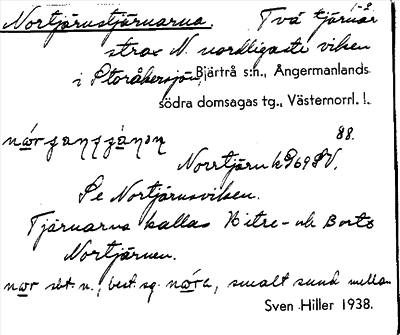 Nortjärnstjärnarna. Två tjärnar 1-2.
strax N. nordligaste viken
i Storåkersjön, Bjärtrå s:n., Ångermanlands
södra domsagas tg., Västernorrl. l.
88.
Norrtjärn k 969 SV.
Se Nortjärnsviken.
Tjärnarna kallas Hitre- och Borts
Nortjärnen.
nør sbt. n., best. sg. nøra, smalt sund mellan
Sven Hiller 1938.